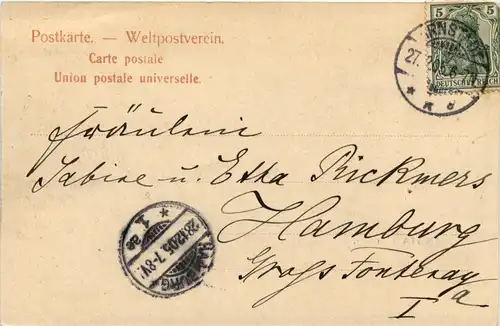 Postkarte. — Weltpostverein.
Carte postale
Union postale universelle.
5 5
DEUTSCHES REICH
Fräulein
Sabine u. Etha Rickmers
Hamburg
Gross Fontenay
a
I
HAMBURG
28.12.05. 7-8V.
* 1